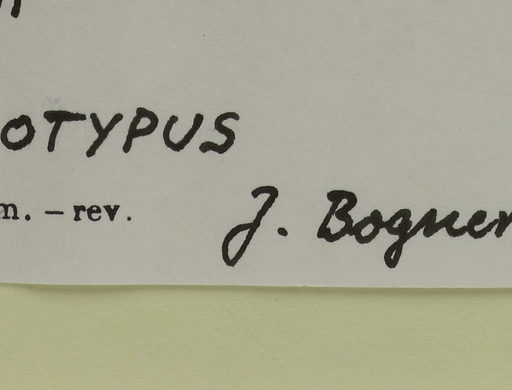 OTYPUS
m. – rev.
J. Bogner